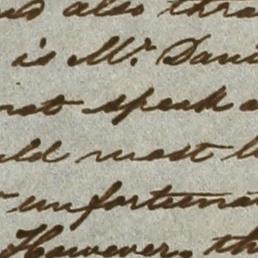 also thra
is Mr. Dani
not speak a
ld most l
unfortunat
However, th